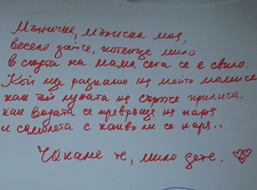 Мъничке, мъничка моя,
весело зайче, котенце мило
в скута на мама сега се е свило.
Кой ще разкаже на моето маминце
как той луната на сърже прилича,
как водата се превръща на пара
и самолета с какво ли се кара..
Чакаме те, мило дете.